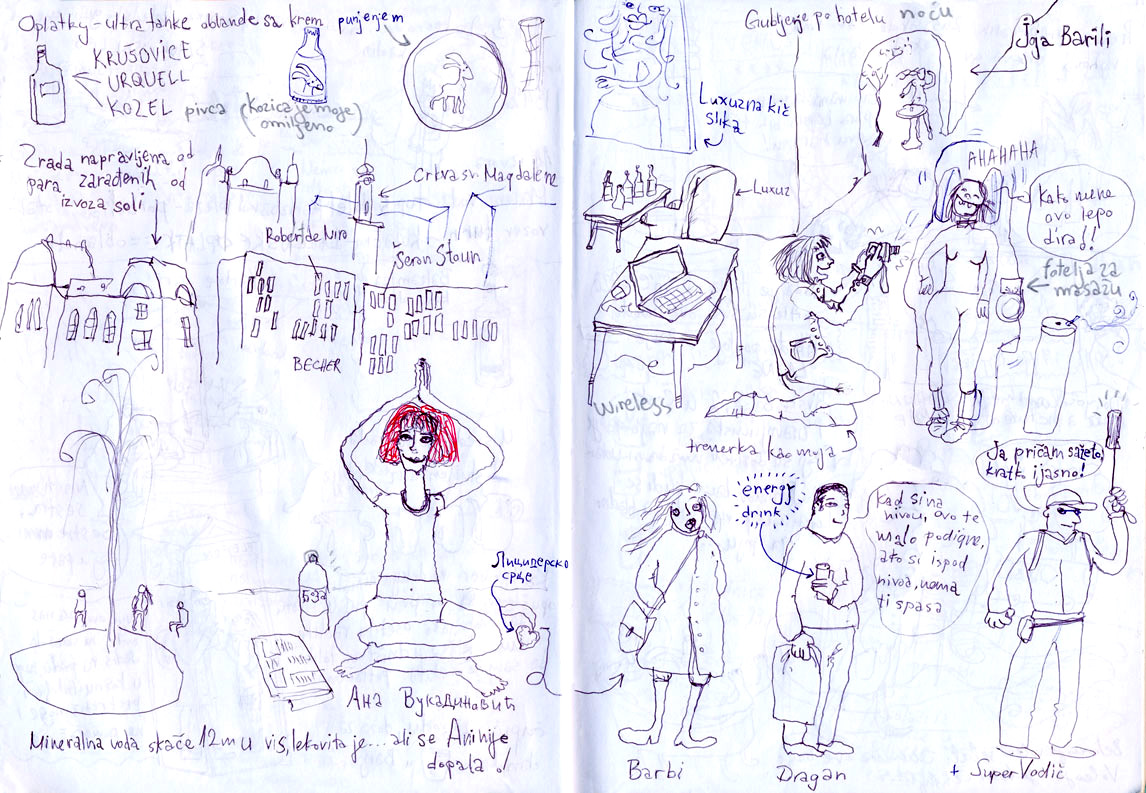 Oplatky - ultra tanke oblande sa krem punjenjem
KRUŠOVICE
URQUELL
KOZEL pivca (Kozica je moje
omiljeno)
Zgrada napravljena od
para zarađenih od
izvoza soli
Crkva sv. Magdalene
Robert de Niro
Šeron Stoun
BECHER
Лицидерско
срце
Ана Вукадиновић
Mineralna voda skače 12m u vis, lekovita je... ali se Ani nije
dopala!
Gubljenje po hotelu noću
Jja Barili
Luxuzna kič
slika
Luxuz
AHAHAHA
Kako mene
ovo lepo
dira!!
fotelja za
masažu
wireless
trenerka kao moja
energy
drink
Kad si na
nivou, ovo te
malo podigne,
ako si ispod
nivoa, nema
ti spasa
Ja pričam sažeto,
kratko i jasno!
Barbi
Dragan
+ SuperVodič